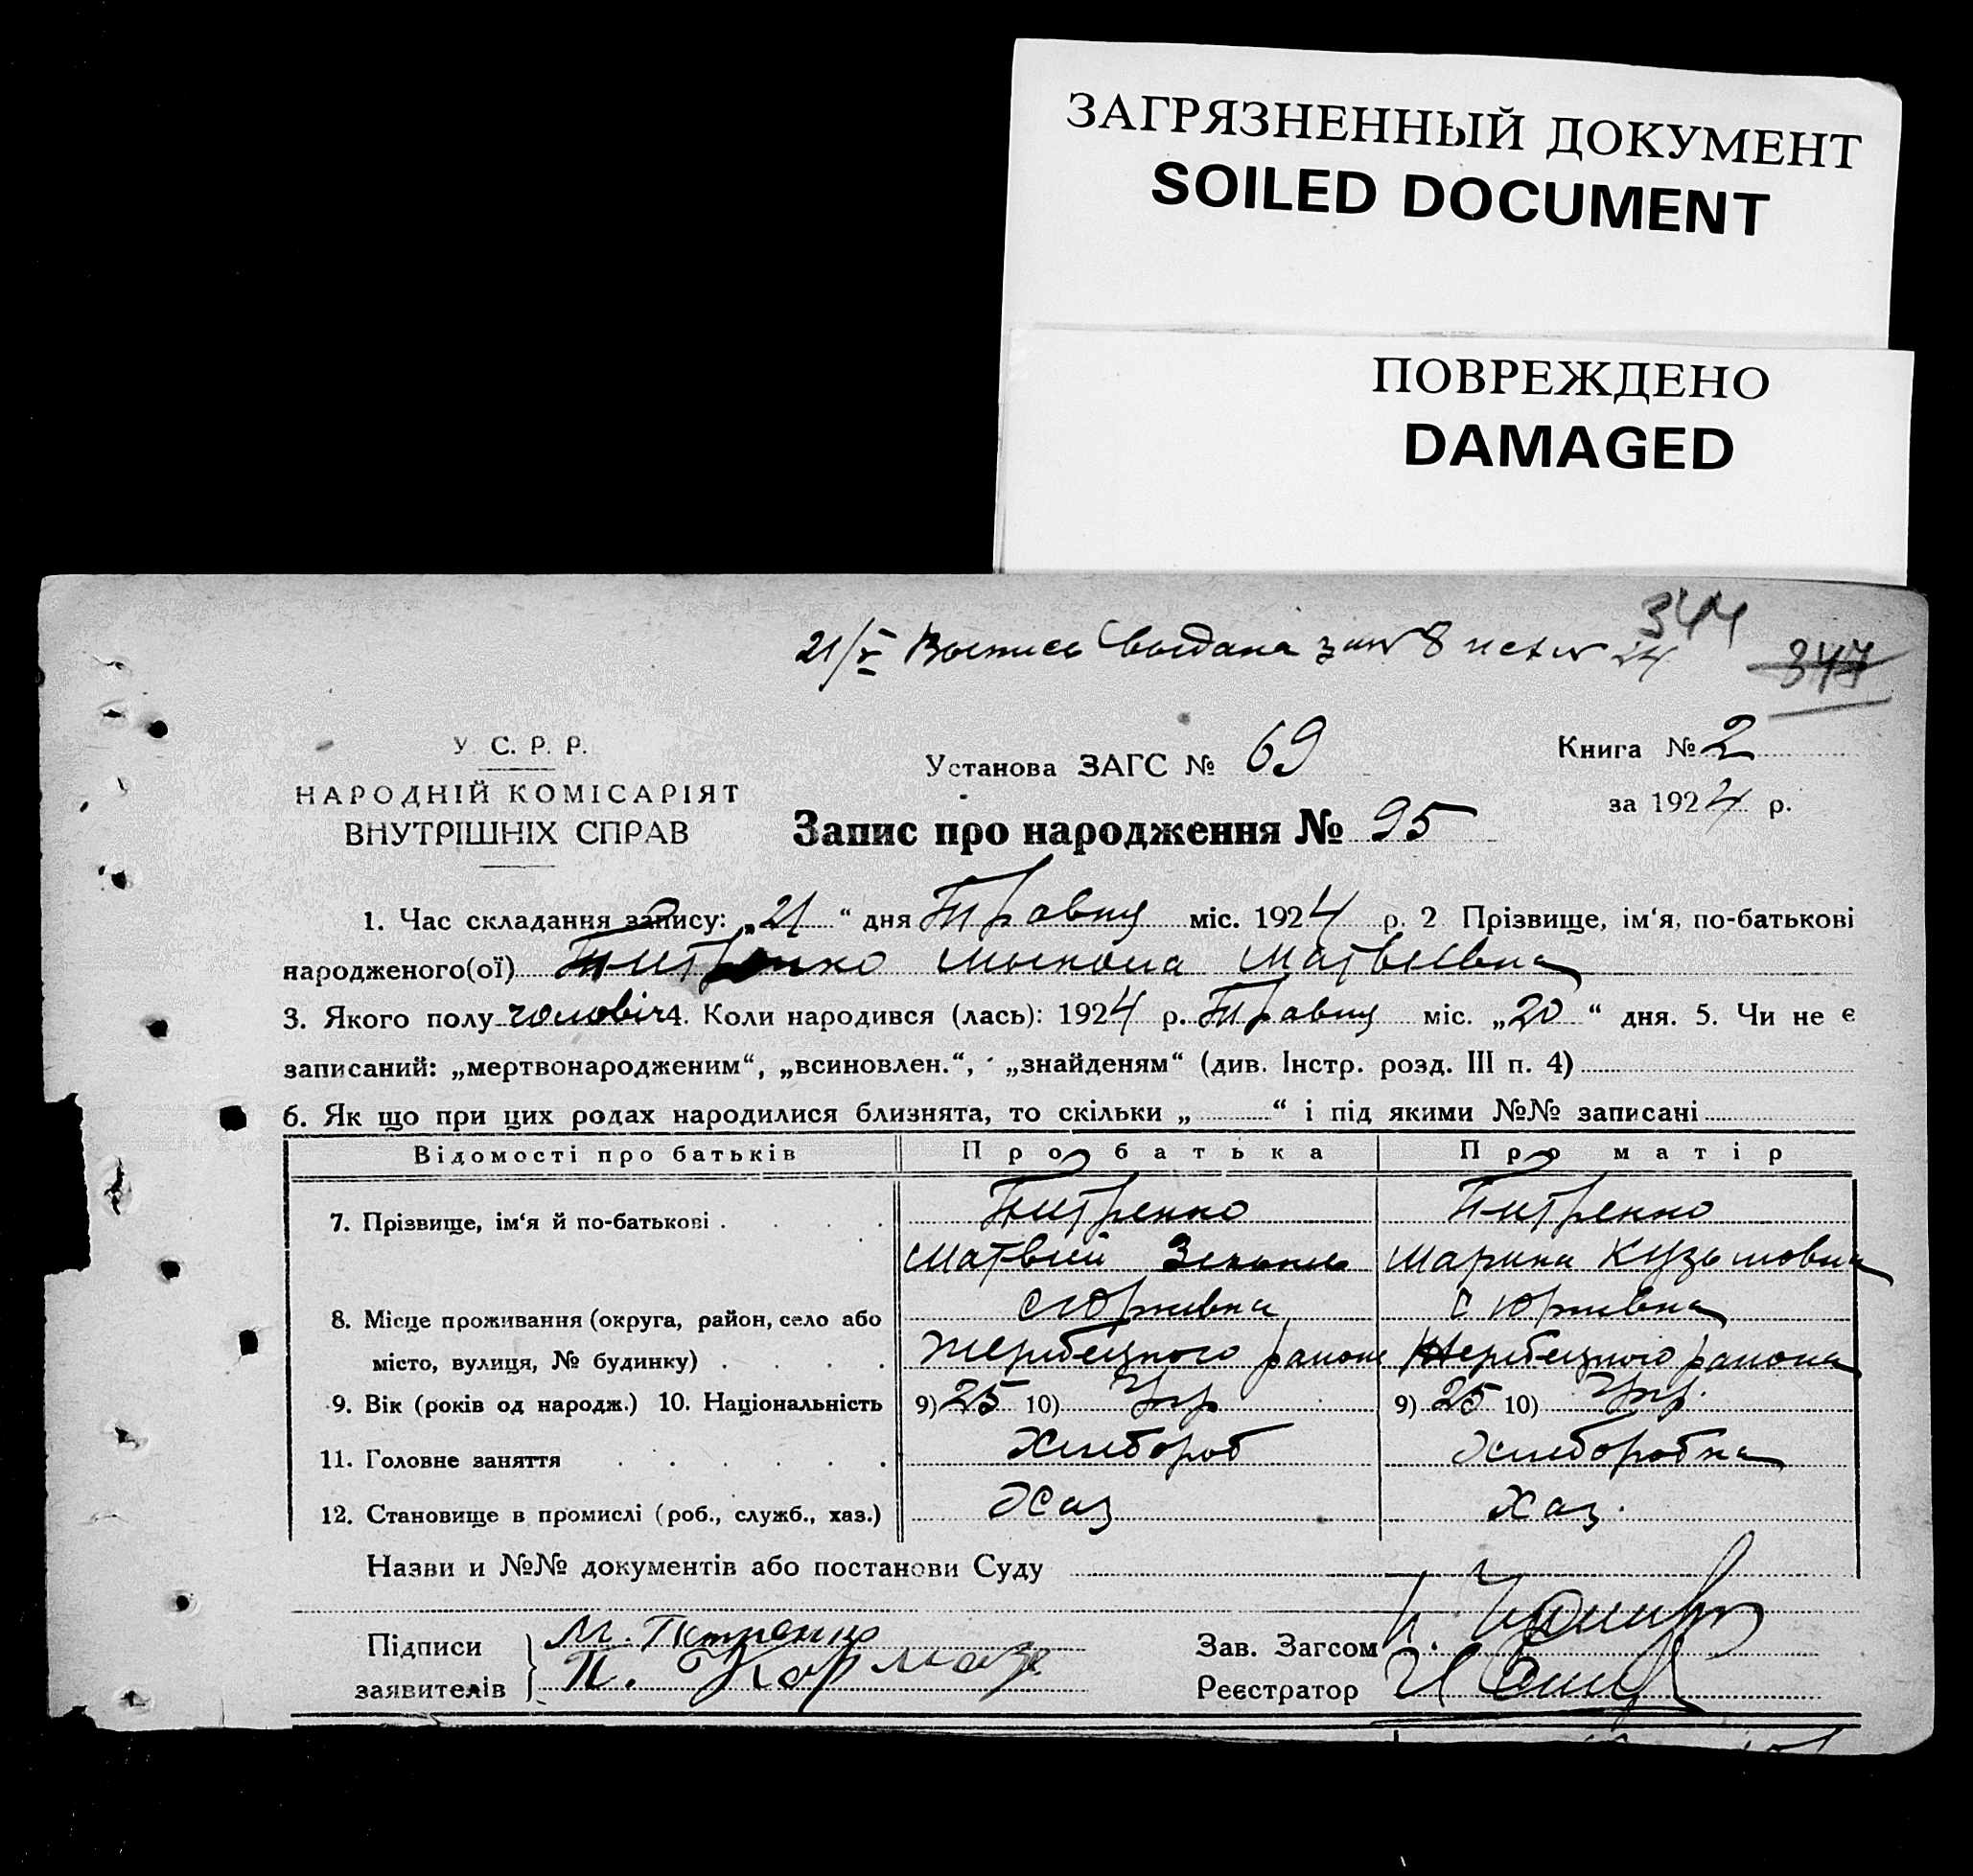 ЗАГРЯЗНЕННЫЙ ДОКУМЕНТ
SOILED DOCUMENT
ПОВРЕЖДЕНО
DAMAGED
344
21/V Выпись выдана 8 24
347
У. С. Р. Р.
НАРОДНІЙ КОМІСАРІЯТ
ВНУТРІШНІХ СПРАВ
Установа ЗАГС № 69
Книга № 2
за 1924 р.
Запис про народження № 95
1. Час складання запису: „21“ дня Травня міс. 1924 р. 2 Прізвище, ім‘я, по-батькові
народженого(ої) Питренко Мыкола Матвиевна
3. Якого полу чоловіч 4. Коли народився (лась): 1924 р. Травня міс. „20“ дня. 5. Чи не є
записаний: „мертвонародженим“, „всиновлен.“, „знайденям“ (див. Інстр. розд. III п. 4)
6. Як що при цих родах народилися близнята, то скільки „ “ і під якими №№ записані
Відомості про батьків Про батька Про матір
7. Прізвище, ім‘я й по-батькові Питренко Питренко
Матвий Марина Кузьмовна
8. Місце проживання (округа, район, село або с Юркивка с Юркивка
місто, вулиця, № будинку) Жеребецкого району Жеребецкого района
9. Вік (років од народж.) 10. Національність 9) 25 10) Укр 9) 25 10) Укр.
11. Головне заняття Хлибороб Хлиборобка
12. Становище в промислі (роб., служб., хаз.) Хаз Хаз.
Назви и №№ документів або постанови Суду
Підписи М. Петренко
Зав. Загсом
заявителів П. Кормаз
Реєстратор